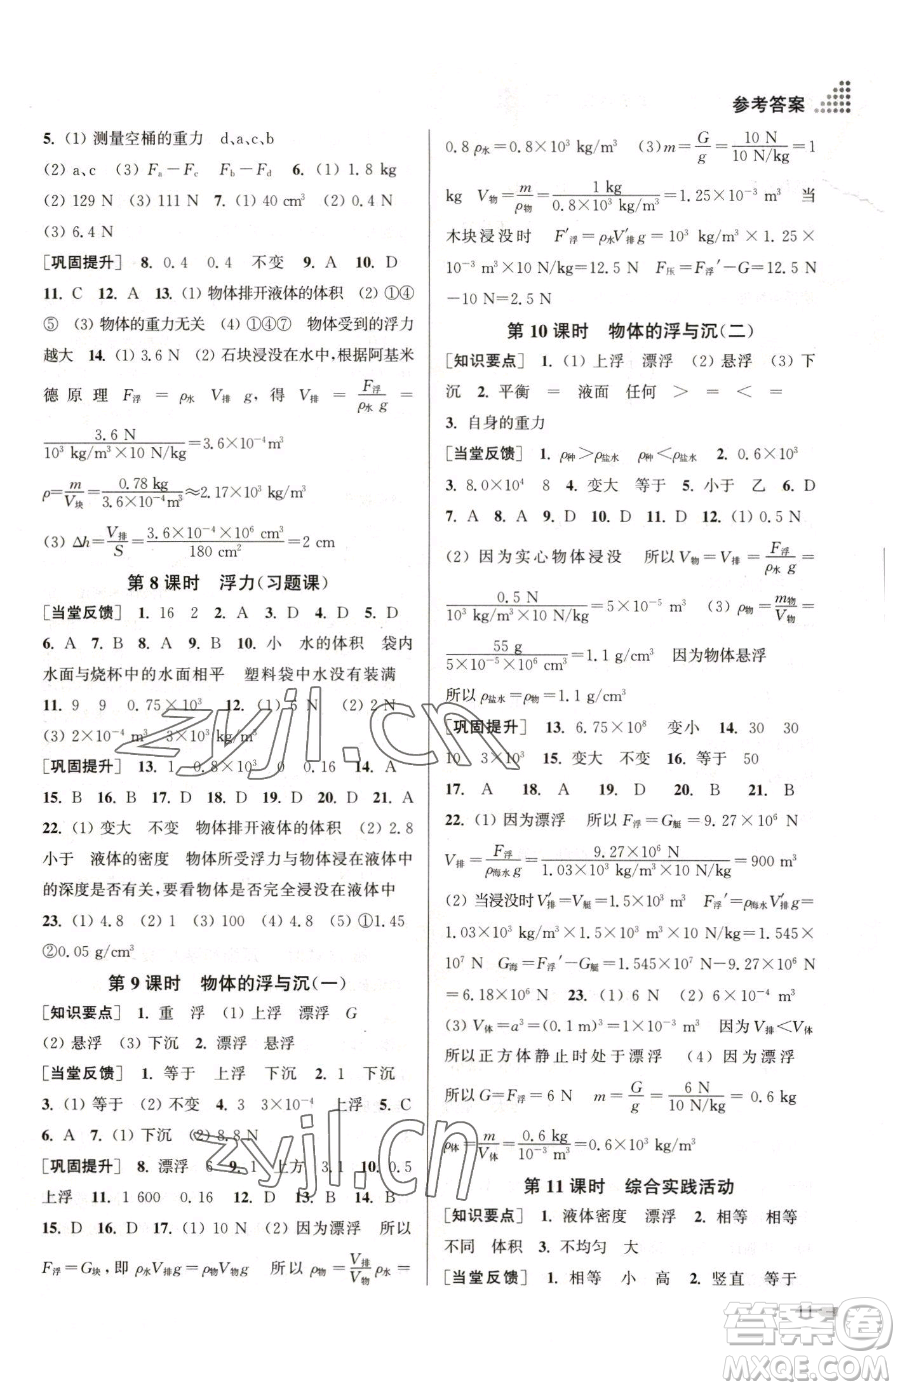 参考答案
5. (1) 测量空桶的重力 d、a、c、b
(2) a、c (3) Fa－Fc Fb－Fd 6. (1) 1.8 kg
(2) 129 N (3) 111 N 7. (1) 40 cm³ (2) 0.4 N
(3) 6.4 N
[巩固提升] 8. 0.4 0.4 不变 9. A 10. D
11. C 12. A 13. (1) 物体排开液体的体积 (2) ①④
⑤ (3) 物体的重力无关 (4) ①④⑦ 物体受到的浮力
越大 14. (1) 3.6 N (2) 石块浸没在水中,根据阿基米
德原理 F浮 ＝ ρ水 V排 g, 得 V排 ＝ F浮/(ρ水 g) ＝
3.6 N/(10³ kg/m³×10 N/kg)＝3.6×10⁻⁴ m³
ρ＝m/V块＝0.78 kg/(3.6×10⁻⁴ m³)≈2.17×10³ kg/m³
(3) Δh＝V排/S＝(3.6×10⁻⁴×10⁶ cm³)/(180 cm²)＝2 cm
第 8 课时 浮力(习题课)
[当堂反馈] 1. 16 2 2. A 3. D 4. D 5. D
6. A 7. B 8. A 9. B 10. 小 水的体积 袋内
水面与烧杯中的水面相平 塑料袋中水没有装满
11. 9 9 0.75×10³ 12. (1) 5 N (2) 2 N
(3) 2×10⁻⁴ m³ 3×10³ kg/m³
[巩固提升] 13. 1 0.8×10³ 0 0.16 14. A
15. B 16. D 17. B 18. D 19. D 20. D 21. A
22. (1) 变大 不变 物体排开液体的体积 (2) 2.8
小于 液体的密度 物体所受浮力与物体浸没在液体中
的深度是否有关,要看物体是否完全浸没在液体中
23. (1) 4.8 (2) 1 (3) 100 (4) 4.8 (5) ①1.45
②0.05 g/cm³
第 9 课时 物体的浮与沉(一)
[知识要点] 1. 重 浮 (1) 上浮 漂浮 G
(2) 悬浮 (3) 下沉 2. 漂浮 悬浮
[当堂反馈] 1. 等于 上浮 下沉 2. 1 下沉
3. (1) 等于 (2) 不变 4. 3 3×10⁻⁴ 上浮 5. C
6. A 7. (1) 下沉 (2) 8.8 N
[巩固提升] 8. 漂浮 6 9. 1 上方 10. 0.5
上浮 11. 1 600 0.16 12. D 13. A 14. B
15. D 16. D 17. (1) 10 N (2) 因为漂浮 所以
F浮＝G块,即 ρ水V排g＝ρ物V物g 所以 ρ物＝V排/V物 ρ水＝
0.8 ρ水＝0.8×10³ kg/m³ (3) m＝G/g＝10 N/(10 N/kg)＝1
kg V物＝m/ρ物＝1 kg/(0.8×10³ kg/m³)＝1.25×10⁻³ m³ 当
木块浸没时 F′浮＝ρ水V′排g＝10³ kg/m³×1.25×
10⁻³ m³×10 N/kg＝12.5 N F压＝F浮′－G＝12.5 N
－10 N＝2.5 N
第 10 课时 物体的浮与沉(二)
[知识要点] 1. (1) 上浮 漂浮 (2) 悬浮 (3) 下
沉 2. 平衡 ＝ 液面 任何 ＞ ＝ ＜
3. 自身的重力
[当堂反馈] 1. ρ种＞ρ盐水 ρ种＜ρ盐水 2. 0.6×10³
3. 8.0×10⁴ 8 4. 变大 等于 5. 小于 乙 6. D
7. A 8. A 9. D 10. D 11. D 12. (1) 0.5 N
(2) 因为实心物体浸没 所以 V物＝V排＝F浮/(ρ水 g)＝
0.5 N/(10³ kg/m³×10 N/kg)＝5×10⁻⁵ m³ (3) ρ物＝m物/V物＝
55 g/(5×10⁻⁵×10⁶ cm³)＝1.1 g/cm³ 因为物体悬浮
所以 ρ盐水＝ρ物＝1.1 g/cm³
[巩固提升] 13. 6.75×10⁸ 变小 14. 30 30
10 3×10³ 15. 变大 不变 16. 等于 50
17. A 18. A 19. D 20. B 21. B
22. (1) 因为漂浮 所以 F浮＝G艇＝9.27×10⁶ N
V排＝F浮/(ρ海水 g)＝9.27×10⁶ N/(1.03×10³ kg/m³×10 N/kg)＝900 m³
(2) 当浸没时 V′排＝V艇＝1.5×10³ m³ F浮′＝ρ海水V′排g＝
1.03×10³ kg/m³×1.5×10³ m³×10 N/kg＝1.545×
10⁷ N G海＝F浮′－G艇＝1.545×10⁷ N－9.27×10⁶ N
＝6.18×10⁶ N 23. (1) 6 N (2) 6×10⁻⁴ m³
(3) V体＝a³＝(0.1 m)³＝1×10⁻³ m³ 因为 V排＜V体
所以正方体静止时处于漂浮 (4) 因为漂浮
所以 G＝F浮＝6 N m＝G/g＝6 N/(10 N/kg)＝0.6 kg
ρ体＝m/V体＝0.6 kg/(10⁻³ m³)＝0.6×10³ kg/m³
第 11 课时 综合实践活动
[知识要点] 1. 液体密度 漂浮 2. 相等 相等
不同 体积 3. 不均匀 大
[当堂反馈] 1. 相等 小 高 2. 竖直 等于
11
zyjl.cn
zyjl.cn
答案圈
MXQE.COM